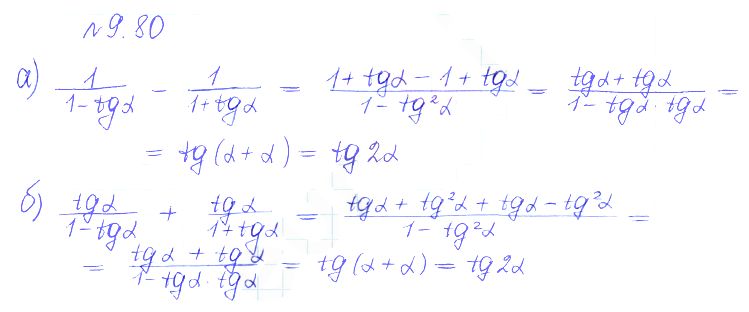 № 9.80
а) 1/(1 - tgα) - 1/(1 + tgα) = (1 + tgα - 1 + tgα)/(1 - tg²α) = (tgα + tgα)/(1 - tgα · tgα) =
= tg(α + α) = tg2α
б) tgα/(1 - tgα) + tgα/(1 + tgα) = (tgα + tg²α + tgα - tg²α)/(1 - tg²α) =
= (tgα + tgα)/(1 - tgα · tgα) = tg(α + α) = tg2α